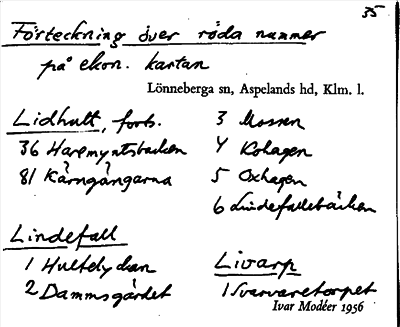 35
Förteckning över röda nummer
på ekon. kartan
Lönneberga sn, Aspelands hd, Klm. l.
Lidhult, forts.
36 Haremyntsbacken
81 Kärngångarna
Lindefall
1 Hultelyckan
2 Dammsgärdet
3 Mossen
4 Kohagen
5 Oxhagen
6 Lindefallebäcken
Livarp
1 Svarvaretorpet
Ivar Modéer 1956